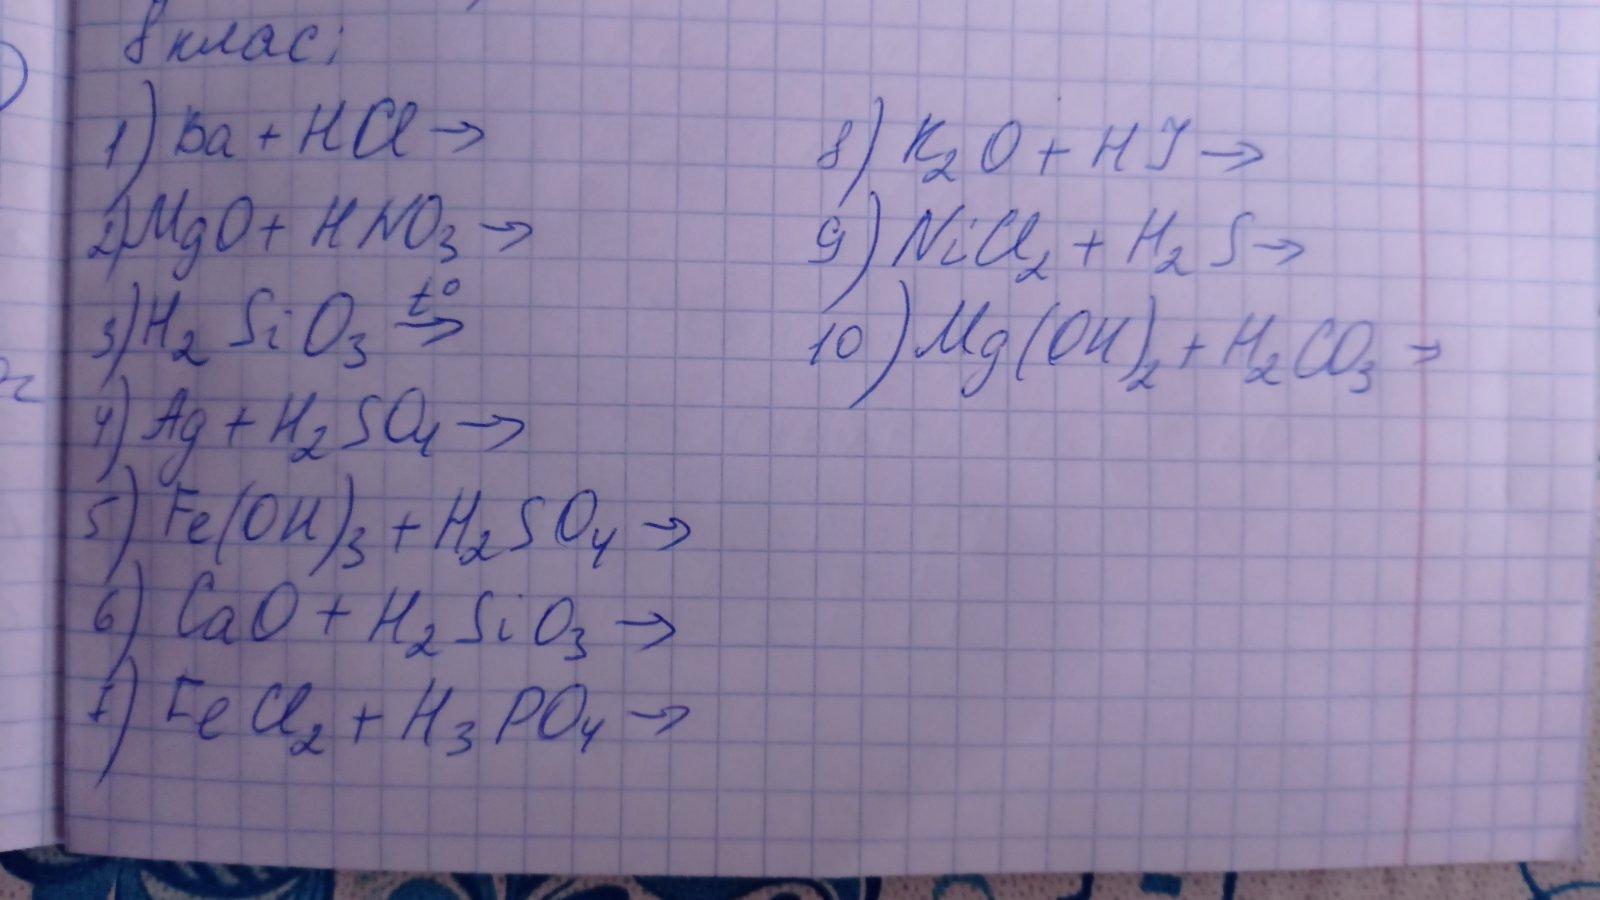 8 клас;
1) Ba + HCl →
2) MgO + HNO₃ →
3) H₂SiO₃ t° →
4) Ag + H₂SO₄ →
5) Fe(OH)₃ + H₂SO₄ →
6) CaO + H₂SiO₃ →
7) FeCl₂ + H₃PO₄ →
8) K₂O + HJ →
9) NiCl₂ + H₂S →
10) Mg(OH)₂ + H₂CO₃ →